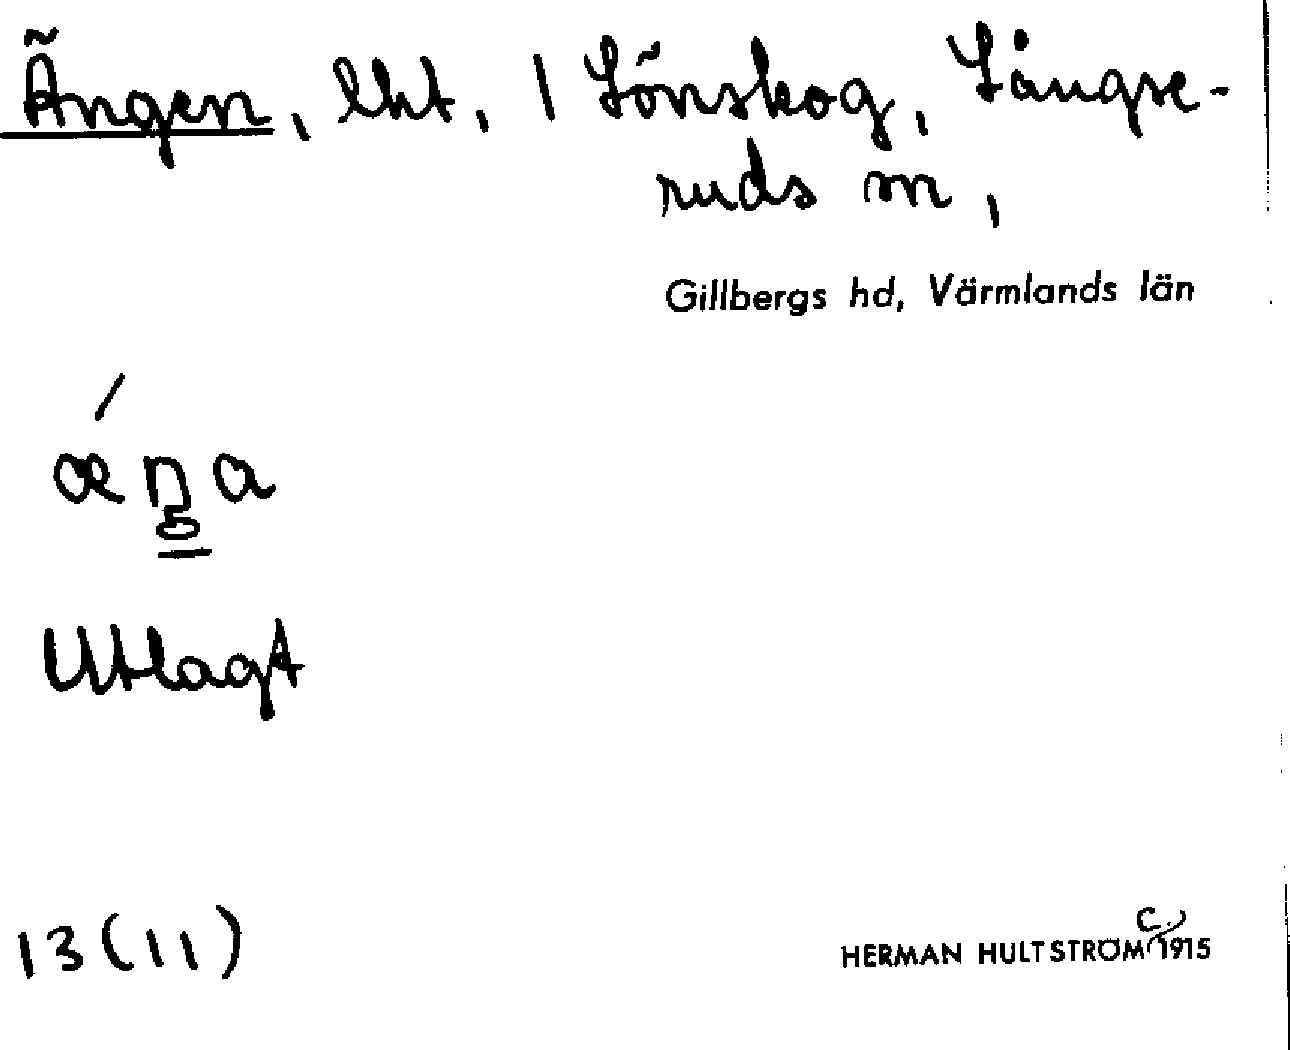 Ängen, lht, 1 Lönskog, Långse-
ruds sn,
Gillbergs hd, Värmlands län
ǽŋa
Utlagt
13(11)
HERMAN HULTSTRÖM C. 1915